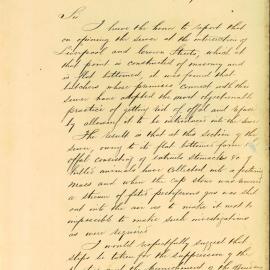 Sir
I have the honor to report that
on opening the sewer at the intersection of
Liverpool and Crown Streets, which at
that point is constructed of masonry and
is flat bottomed, it was found that
butchers whose premises connect with this
sewer have adopted the most objectionable
practice of getting rid of offal and refuse
by allowing it to be introduced into the sewer
The result is that at this section of the
sewer, owing to its flat bottomed form
offal consisting of entrails stomachs &c of
killed animals have collected into a festering
mass and when the cap stone was removed
a stream of fetid pestiferous gas was shot
out into the air so as to make it next to
impossible to make such investigations
as were required
I would respectfully suggest that
steps be taken for the suppression of the
practice and the punishment of the offenders